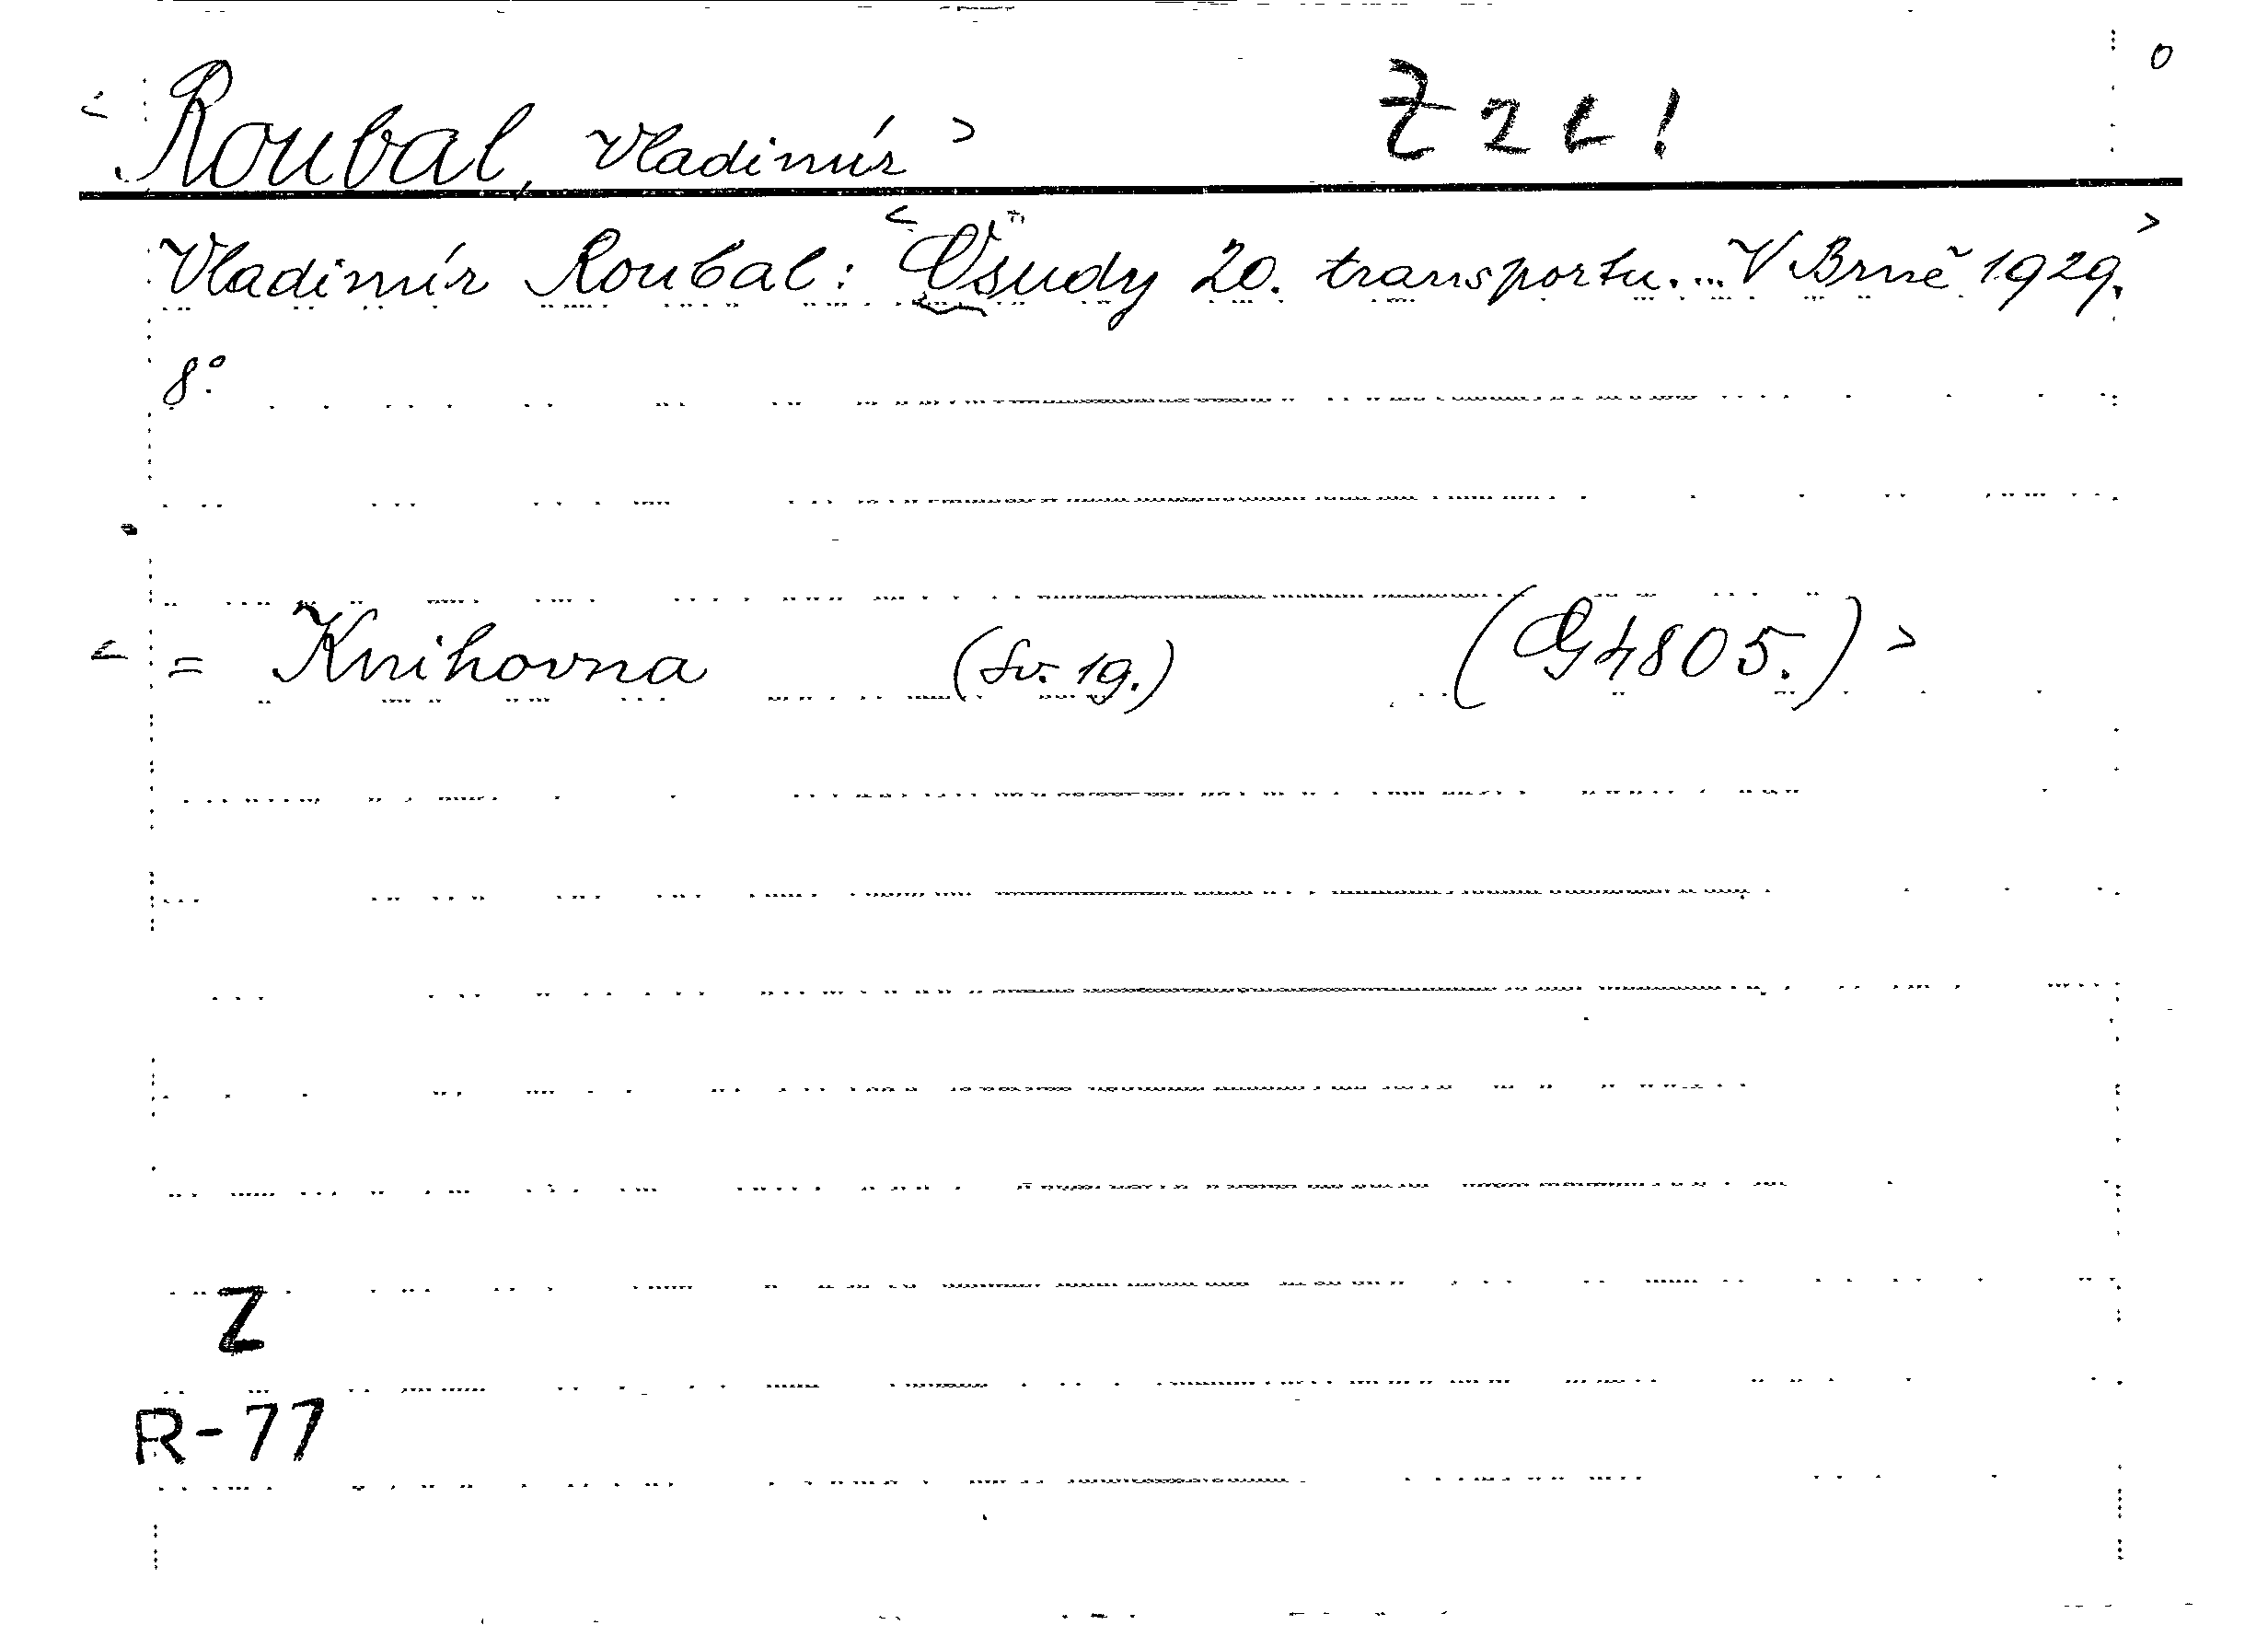 < Roubal, Vladimír >
o
Vladimír Roubal: < Osudy 20. transportu.... V Brně 1929. >
8°.
< = Knihovna (Sv. 19.) (G4805.) >
Z
R-77